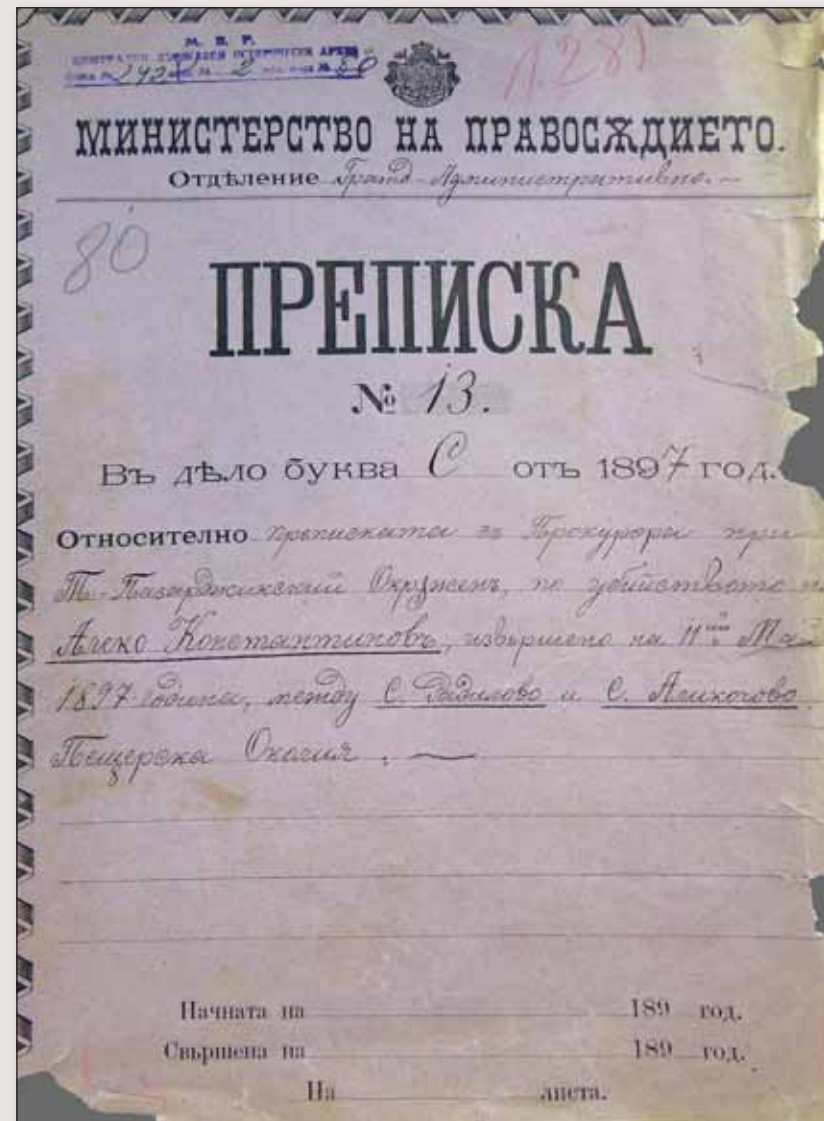 М. В. Р.
ЦЕНТРАЛЕН ДЪРЖАВЕН ИСТОРИЧЕСКИ АРХИВ
№ 242 № 2 № 80
л. 281
МИНИСТЕРСТВО НА ПРАВОСѪДИЕТО.
Отдѣление Гражд-Административно.
80
ПРЕПИСКА
№ 13.
Въ дѣло буква С отъ 1897 год.
Относително преписката съ Прокурора при
Т.-Пазарджикский Окрѫженъ, по убийството на
Алеко Константиновъ, извършено на 11 Май
1897 година, между С. Радилово и С. Аликочово
Пещерска Околия.
Начната на 189 год.
Свършена на 189 год.
На листа.